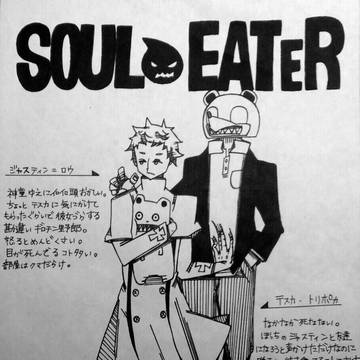 SOUL EATER
ジャスティン=ロウ
神童ゆえに頭おかしい。
ちょっとテスカに気にかけて
もらったぐらいで彼女づらする
勘違いギロチン野郎。
怒るとめんどくさい。
目が死んでる
部屋はクマだらけ。
テスカ・トリポカ
なかなか死なない。
ぼっちのジャスティンと友達
になろうと声かけただけなのに